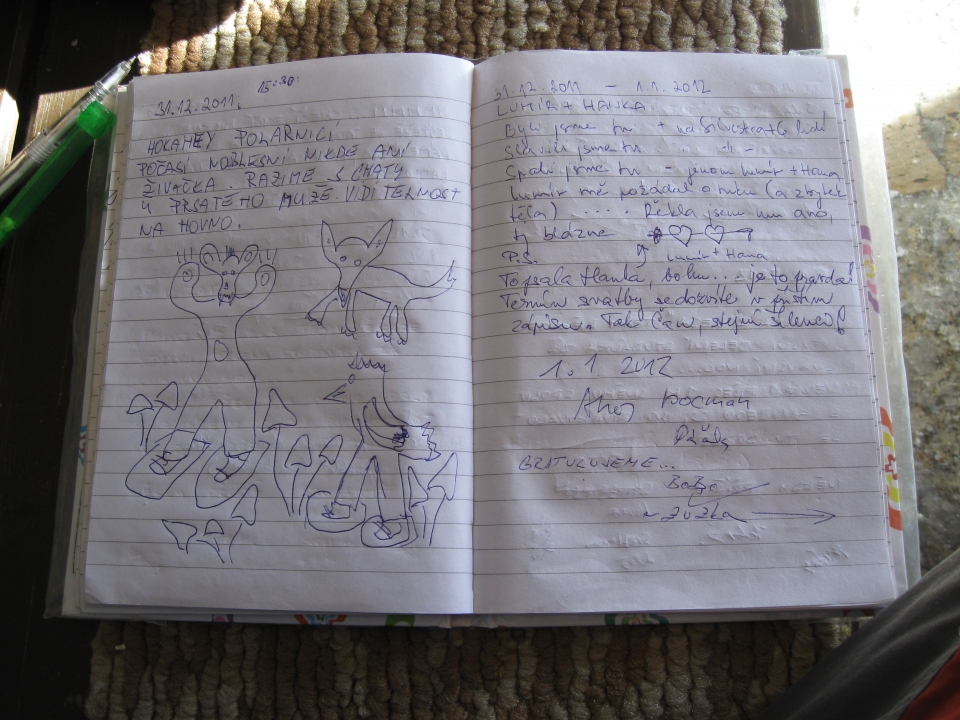 15:30
31.12.2011.
HOKAHEY POLÁRNÍCI
POČASÍ NIKDE ANI
ŽIVÁČKA. RAZÍME S CHATY
U PRSATÉHO MUŽE. VIDITELNOST
NA HOVNO.
31.12.2011 - 1.1.2012
LUMÍR + HANKA
Byli jsme tu + lidí
jsme tu
Spali jsme tu - jenom Lumír + Hana
Lumír mě požádal o ruku (a zbytek
těla) ..... Řekla jsem mu ano,
ty blázne
P.S. Lumír + Hana
To psala Hanka, bohu... je to pravda!
Termín svatby se dozvíte v příštím
zápisu. Tak čau, stejní šílenci!
1.1 2012
Ahoj
GRATULUJEME...
~ Zuzka